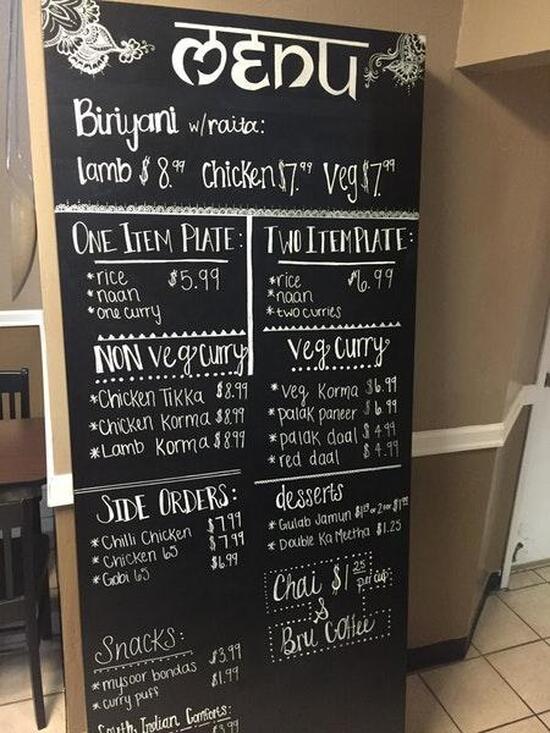 menu
Biriyani w/raita:
lamb $8.99 Chicken $7.99 Veg $7.99
ONE ITEM PLATE:
*rice $5.99
*naan
*one curry
TWO ITEM PLATE:
*rice $6.99
*naan
*two curries
NON Veg Curry
*Chicken Tikka $8.99
*Chicken Korma $8.99
*Lamb Korma $8.99
Veg Curry
*Veg Korma $6.99
*palak paneer $6.99
*palak daal $4.99
*red daal $4.99
SIDE ORDERS:
*Chilli Chicken $7.99
*Chicken 65 $7.99
*Gobi 65 $6.99
desserts
*Gulab Jamun
*Double Ka Meetha $1.25
Chai $1.25 per cup
&
Bru Coffee
Snacks:
*mysoor bondas $3.99
*curry puff $1.99
South Indian Comforts: